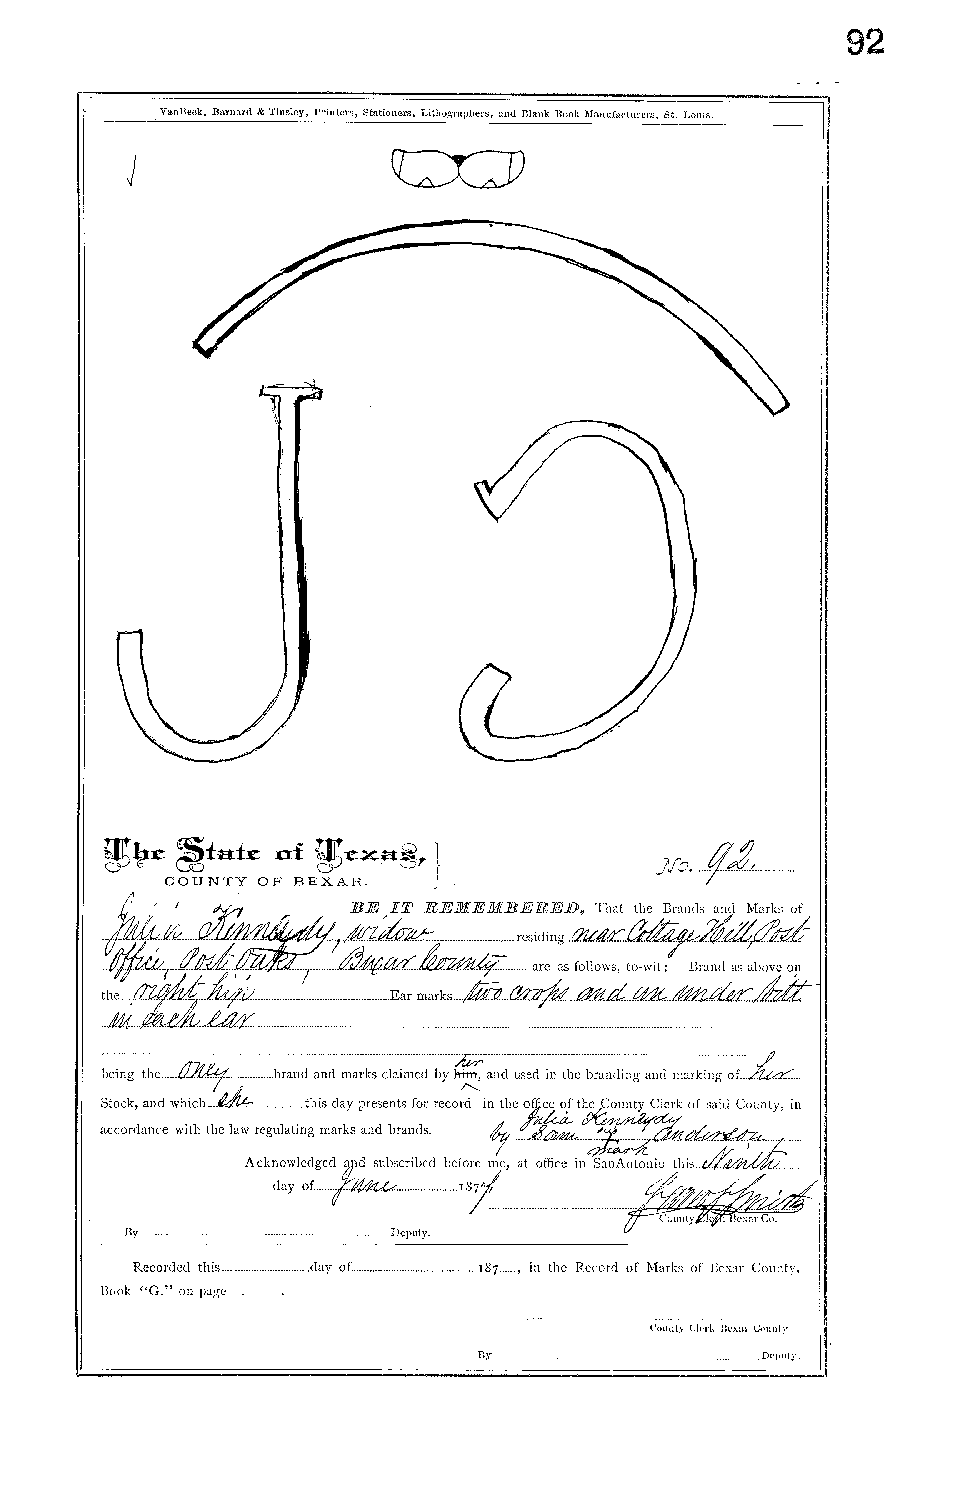 92
VanBeek, Barnard & Tinsley, Printers, Stationers, Lithographers, and Blank Book Manufacturers, St. Louis.
J C
The State of Texas,
COUNTY OF BEXAR.
No. 92.
BE IT REMEMBERED, That the Brands and Marks of
Julia Kennedy, widow residing near Cottage Hill, Post
Office, Post Oaks, Bexar County are as follows, to-wit: Brand as above on
the right hip Ear marks two crops and an under bitt
in each ear
being the only brand and marks claimed by him her, and used in the branding and marking of her
Stock, and which she this day presents for record in the office of the County Clerk of said County, in
Julia Kennedy
accordance with the law regulating marks and brands. by Sam Anderson
mark
Acknowledged and subscribed before me, at office in San Antonio this Ninth
day of June 1877
Smith
County Clerk Bexar Co.
By Deputy.
Recorded this day of 187 , in the Record of Marks of Bexar County,
Book "G." on page
County Clerk Bexar County
By Deputy.